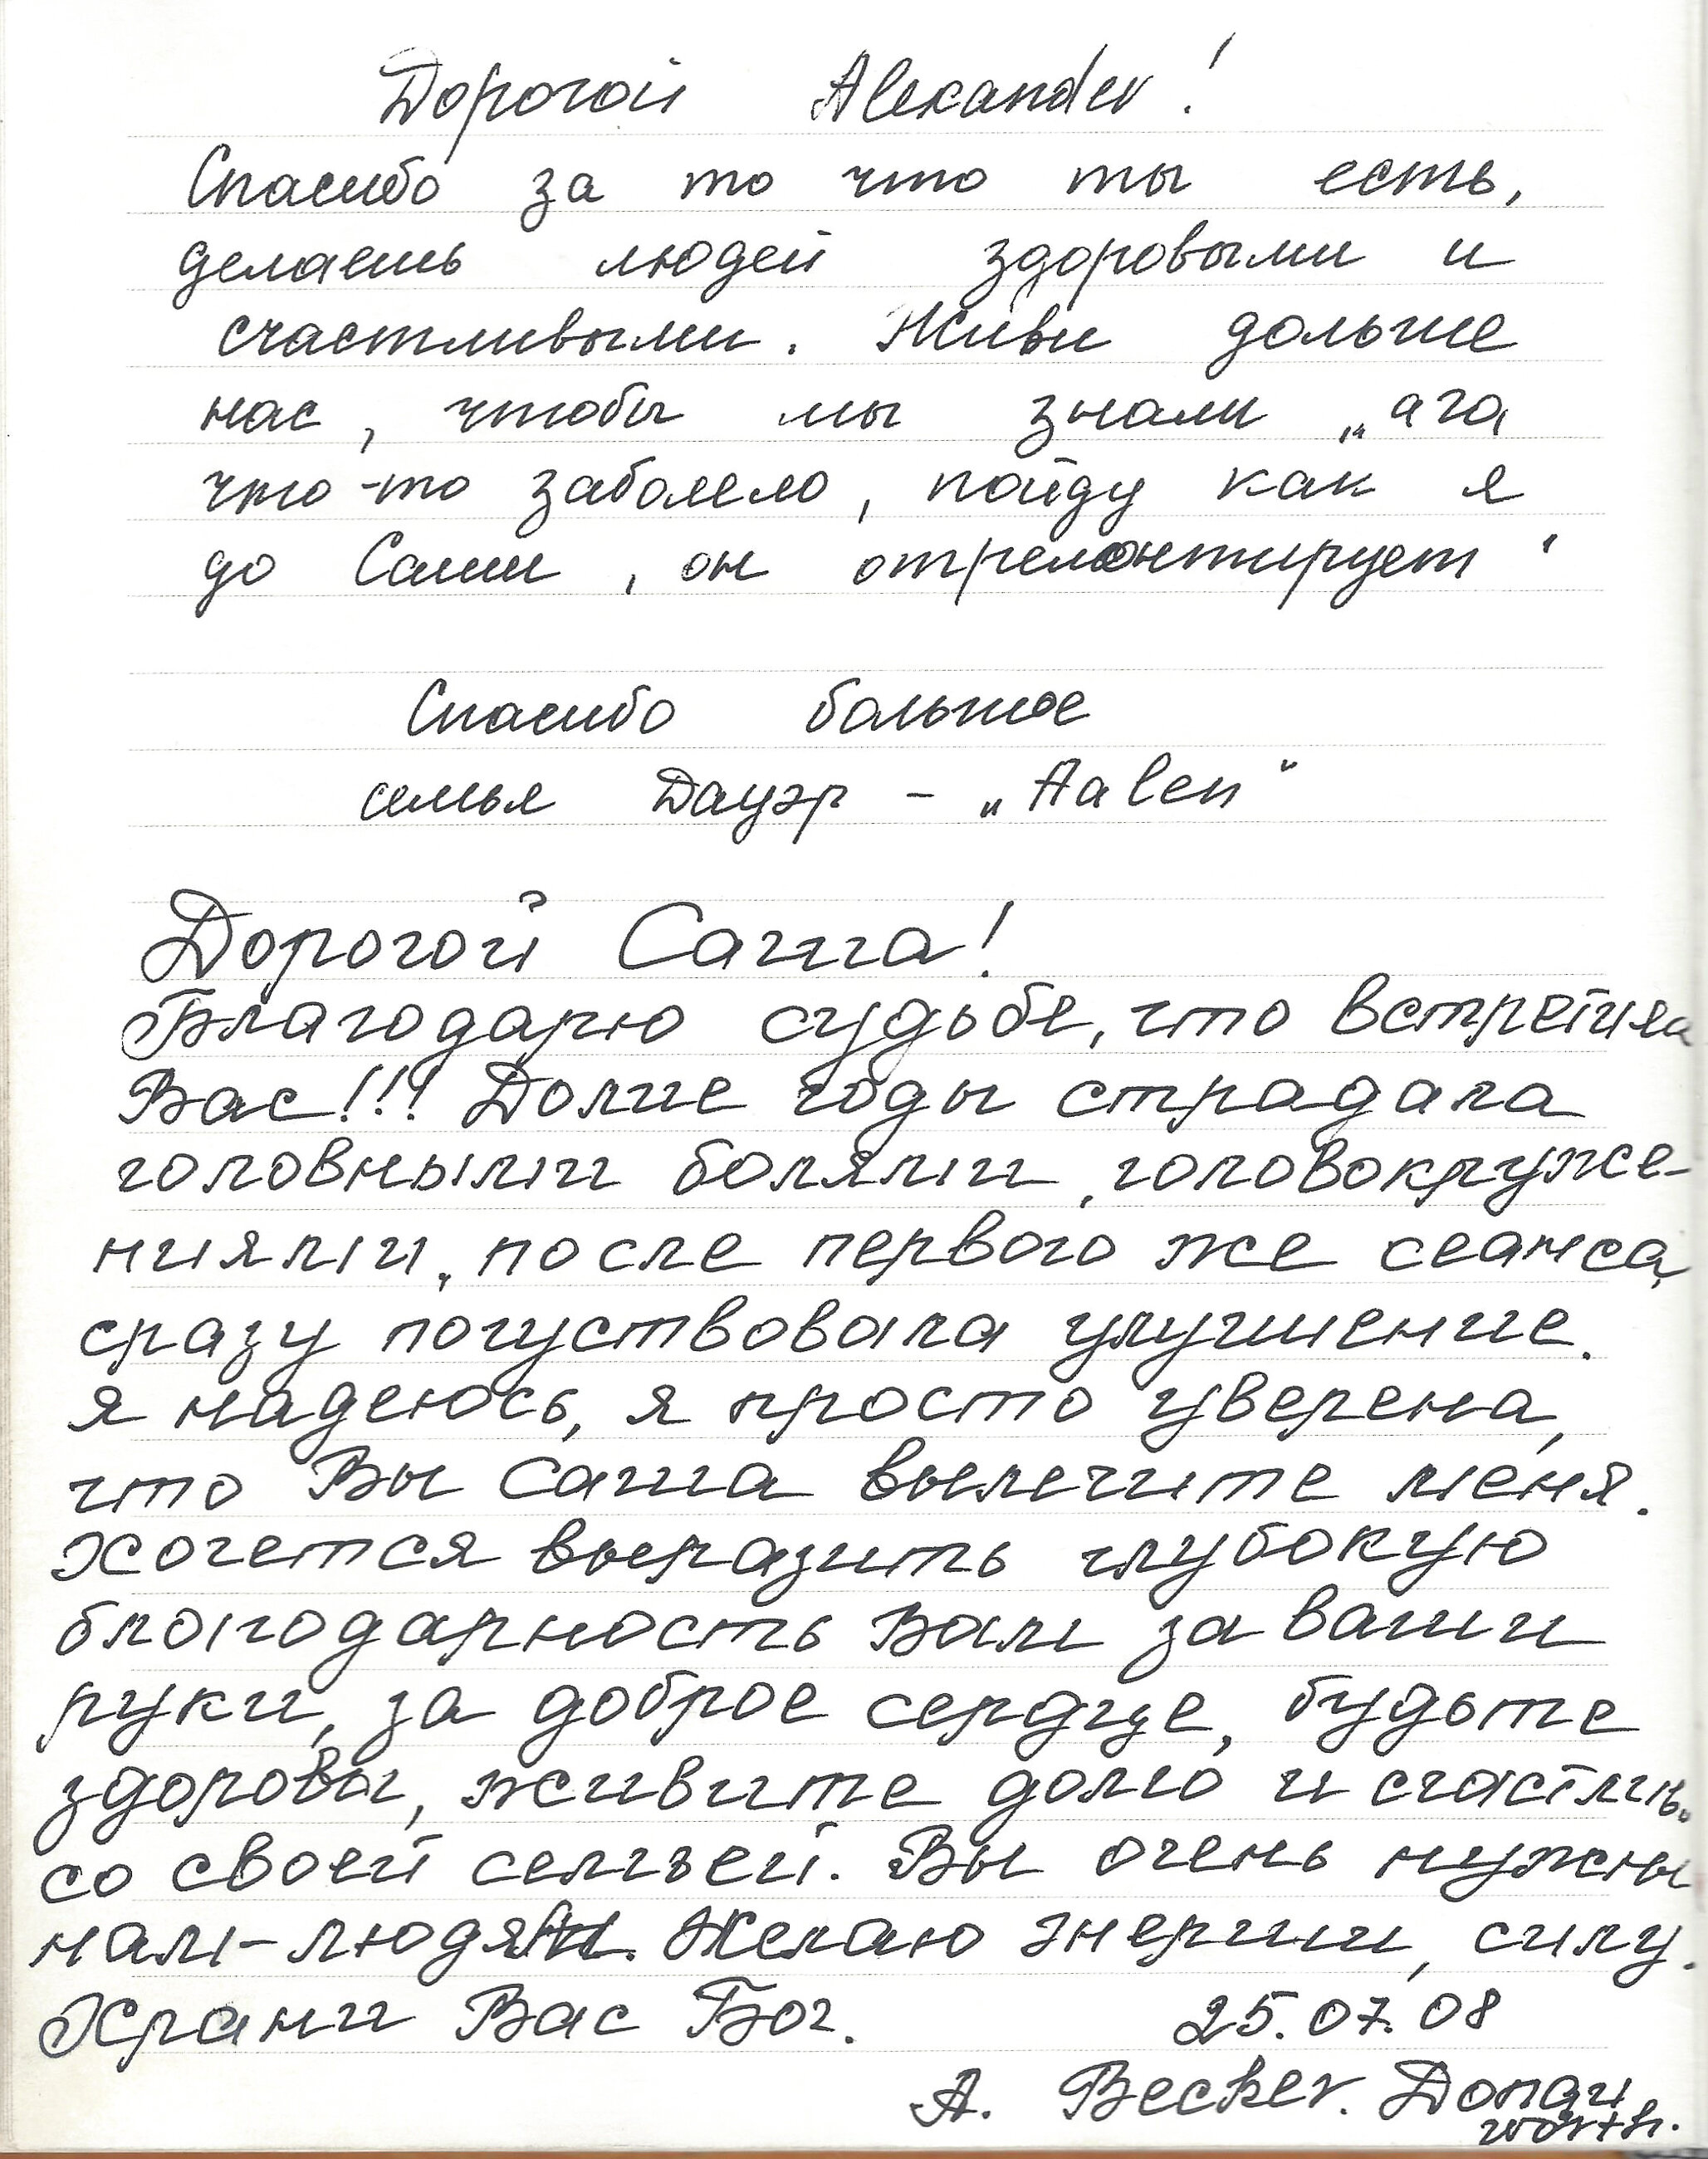 Дорогой Alexander!
Спасибо за то что ты есть,
делаешь людей здоровыми и
счастливыми. Живи дольше
нас, чтобы мы знали „ага
что-то заболело, пойду как я
до Саши, он отремонтирует“
Спасибо большое
семья Дауэр - „Aalen“
Дорогой Саша!
Благодарю судьбе, что встретила
Вас!!! Долгие годы страдала
головными болями, головокруже-
ниями, после первого же сеанса,
сразу почуствовала улучшение.
Я надеюсь, я просто уверена,
что Вы Саша вылечите меня.
Хочется выразить глубокую
благодарность Вам за ваши
руки, за доброе сердце, будьте
здоровы, живите долго и счастлив.
со своей семьей. Вы очень нужны
нам-людям. Желаю энергии, силу.
Храни Вас Бог. 25.07.08
A. Becker. Донау
wörth.